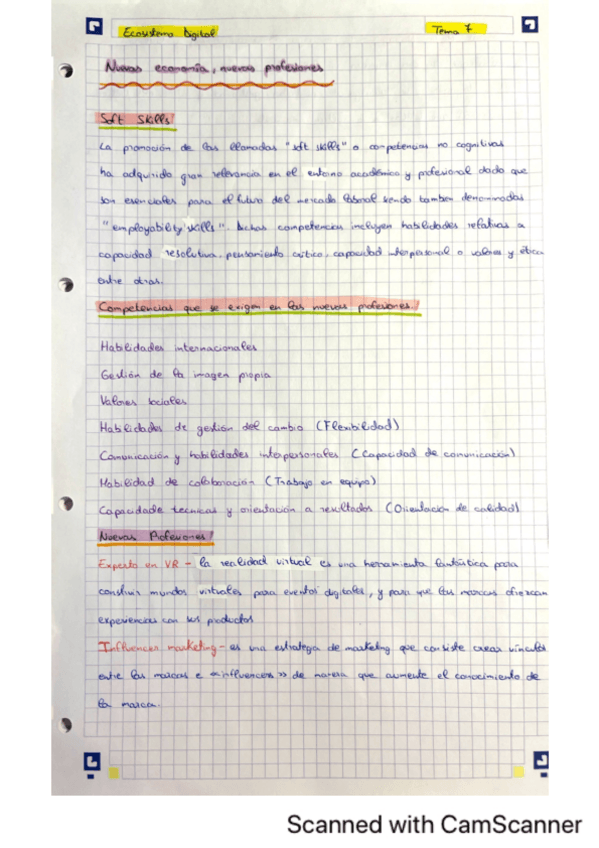 Ecosistema Digital
Tema 7
Nuevas economía, nuevas profesiones
Soft Skills
La promoción de las llamadas "soft skills" o competencias no cognitivas
ha adquirido gran relevancia en el entorno académico y profesional dado que
son esenciales para el futuro del mercado laboral siendo tambien denominadas
"employability skills". Dichas competencias incluyen habilidades relativas a
capacidad resolutiva, pensamiento critico, capacidad interpersonal o valores y ética
entre otras.
Competencias que se exigen en las nuevas profesiones.
Habilidades internacionales
Gestión de la imagen propia
Valores sociales
Habilidades de gestión del cambio (Flexibilidad)
Comunicación y habilidades interpersonales (Capacidad de comunicación)
Habilidad de colaboración (Trabajo en equipo)
Capacidade tecnicas y orientación a resultados (Orientación de calidad)
Nuevas Profesiones
Experto en VR - la realidad virtual es una herramienta fantástica para
construir mundos virtuales para eventos digitales, y para que las marcas ofrezcan
experiencias con sus productos
Influencer marketing - es una estrategia de marketing que consiste crear vínculos
entre las marcas e «influencers» de manera que aumente el conocimiento de
la marca.
Scanned with CamScanner